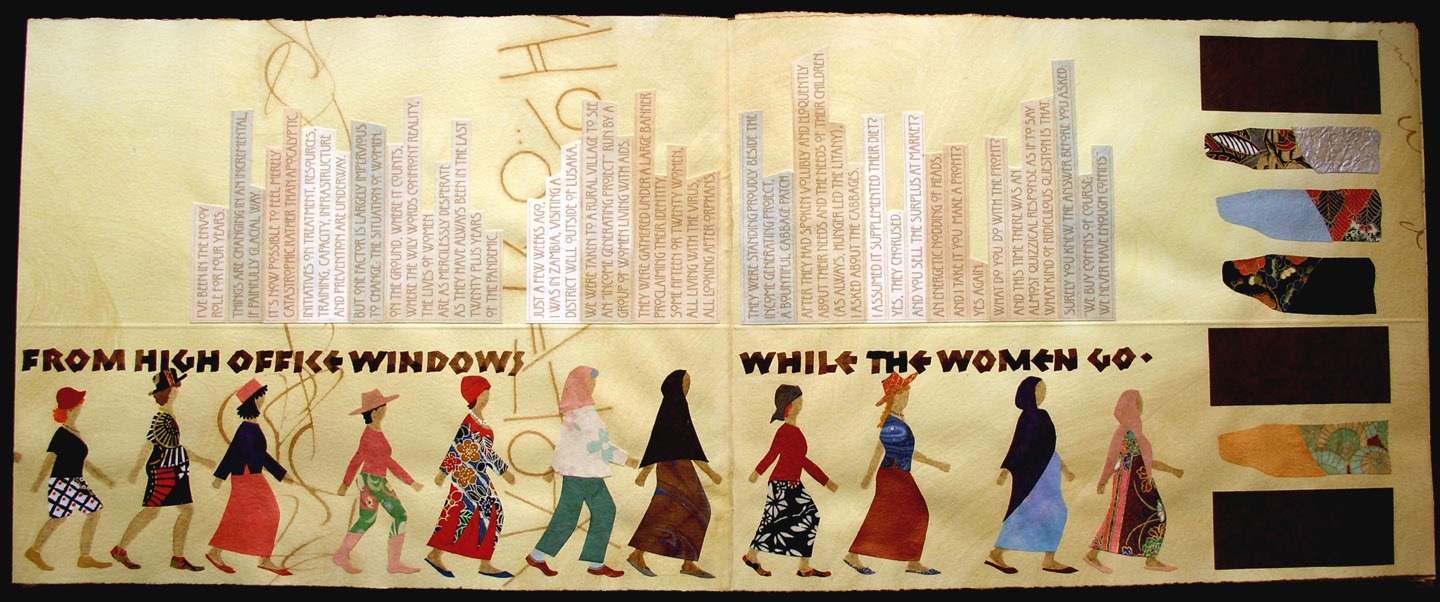 I'VE BEEN IN THE ENVOY
ROLE FOUR YEARS.
THINGS ARE CHANGING IN AN INCREMENTAL,
IF PAINFULLY GLACIAL WAY.
IT'S NOW POSSIBLE TO FEEL MERELY
CATASTROPHIC RATHER THAN APOCALYPTIC
INITIATIVES ON TREATMENT, RESOURCES,
TRAINING, CAPACITY, INFRASTRUCTURE
AND PREVENTION ARE UNDERWAY.
BUT ONE FACTOR IS LARGELY IMPERVIOUS
TO CHANGE: THE SITUATION OF WOMEN.
ON THE GROUND, WHERE IT COUNTS,
WHERE THE WILY WORDS CONFRONT REALITY,
THE LIVES OF WOMEN
ARE AS MERCILESSLY DESPERATE
AS THEY HAVE ALWAYS BEEN IN THE LAST
TWENTY PLUS YEARS
OF THE PANDEMIC.
JUST A FEW WEEKS AGO,
I WAS IN ZAMBIA, VISITING A
DISTRICT WELL OUTSIDE OF LUSAKA.
WE WERE TAKEN TO A RURAL VILLAGE TO SEE
AN "INCOME GENERATING PROJECT" RUN BY A
GROUP OF WOMEN LIVING WITH AIDS.
THEY WERE GATHERED UNDER A LARGE BANNER
PROCLAIMING THEIR IDENTITY,
SOME FIFTEEN OR TWENTY WOMEN,
ALL LIVING WITH THE VIRUS,
ALL LOOKING AFTER ORPHANS.
THEY WERE STANDING PROUDLY BESIDE THE
INCOME GENERATING PROJECT,
A BOUNTIFUL CABBAGE PATCH.
AFTER THEY HAD SPOKEN VOLUBLY AND ELOQUENTLY
ABOUT THEIR NEEDS AND THE NEEDS OF THEIR CHILDREN
(AS ALWAYS, HUNGER LED THE LITANY),
I ASKED ABOUT THE CABBAGES.
I ASSUMED IT SUPPLEMENTED THEIR DIET?
YES, THEY CHORUSED.
AND YOU SELL THE SURPLUS AT MARKET?
AN ENERGETIC NODDING OF HEADS.
AND I TAKE IT YOU MAKE A PROFIT?
YES AGAIN.
WHAT DO YOU DO WITH THE PROFIT?
AND THIS TIME THERE WAS AN
ALMOST QUIZZICAL RESPONSE AS IF TO SAY
WHAT KIND OF RIDICULOUS QUESTION IS THAT
SURELY YOU KNEW THE ANSWER BEFORE YOU ASKED:
"WE BUY COFFINS OF COURSE.
WE NEVER HAVE ENOUGH COFFINS".
FROM HIGH OFFICE WINDOWS
WHILE THE WOMEN GO.